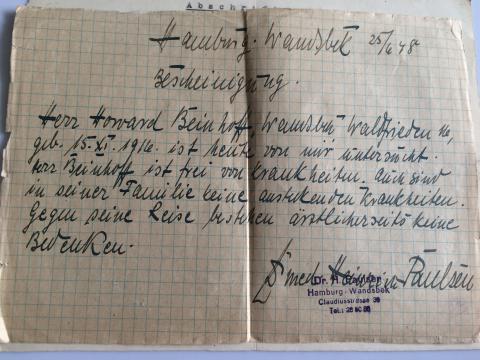 Abschrift
Hamburg-Wandsbek 25/6 48
Bescheinigung.
Herr Howard Beinhoff, Wandsbek Walfrieden
geb. 15. XI. 1916. ist heute von mir untersucht.
Herr Beinhoff ist frei von Krankheiten. Auch sind
in seiner Familie keine ansteckenden Krankheiten.
Gegen seine Reise bestehen ärztlicherseits keine
Bedenken.
Dr med. Paulsen
Dr. H. Paulsen
Hamburg-Wandsbek
Claudiusstrasse
Tel.: 28